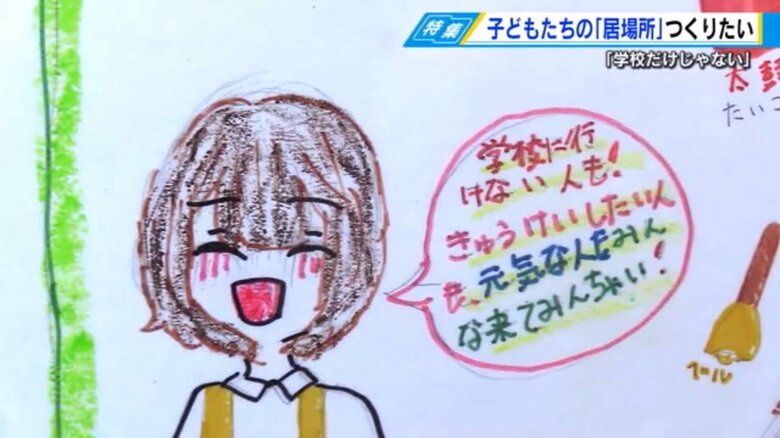 特集
子どもたちの「居場所」つくりたい
「学校だけじゃない」
太鼓
たいこ
学校に行
けない人も!
きゅうけいしたい人
も、元気な人もみん
な来てみんちゃい!
ベル